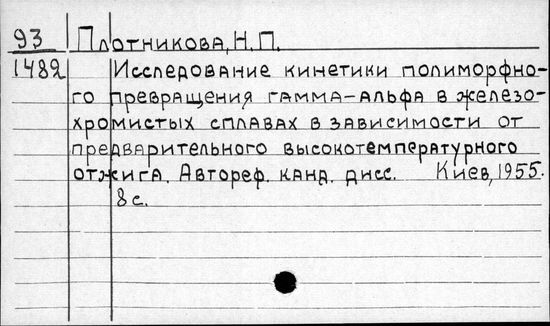 93 Плотникова, Н.П.
1482 Исследование кинетики полиморфно-
го превращения гамма-альфа в железо-
хромистых сплавах в зависимости от
предварительного высокотемпературного
отжига. Автореф. канд. дисс. Киев, 1955.
8 с.